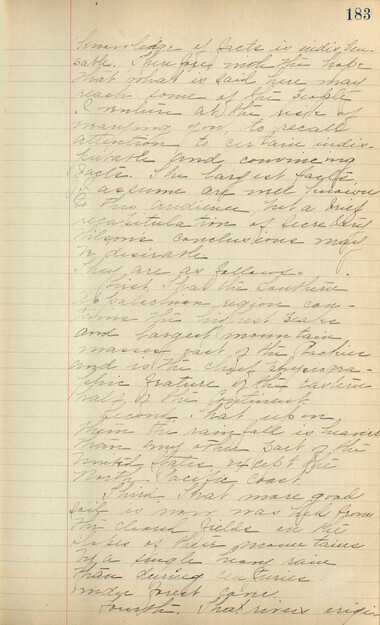 183
knowledge of facts is indispen-
sable. Therefore, with the hope
that what is said here may
reach some of the people
I venture at the risk of
wearying you, to recall
attention to certain indis-
putable and convincing
facts. The largest facts
I assume are well known
to this audience, but a brief
recapitulation of Secretary
Wilson's conclusions may
be desirable.
They are as follows.
First, That the Southern
Appalachian region con-
tains the highest peaks
and largest mountain
masses east of the Rockies
and is the chief physiogra-
phic feature of the Eastern
half of the Continent.
Second. That upon
them the rainfall is heavier
than any other part of the
United States except the
North Pacific Coast.
Third. That more good
soil is now washed from
the cleared fields on the
slopes of these mountains
by a single heavy rain
than during centuries
under forest cover.
Fourth. That rivers origi-